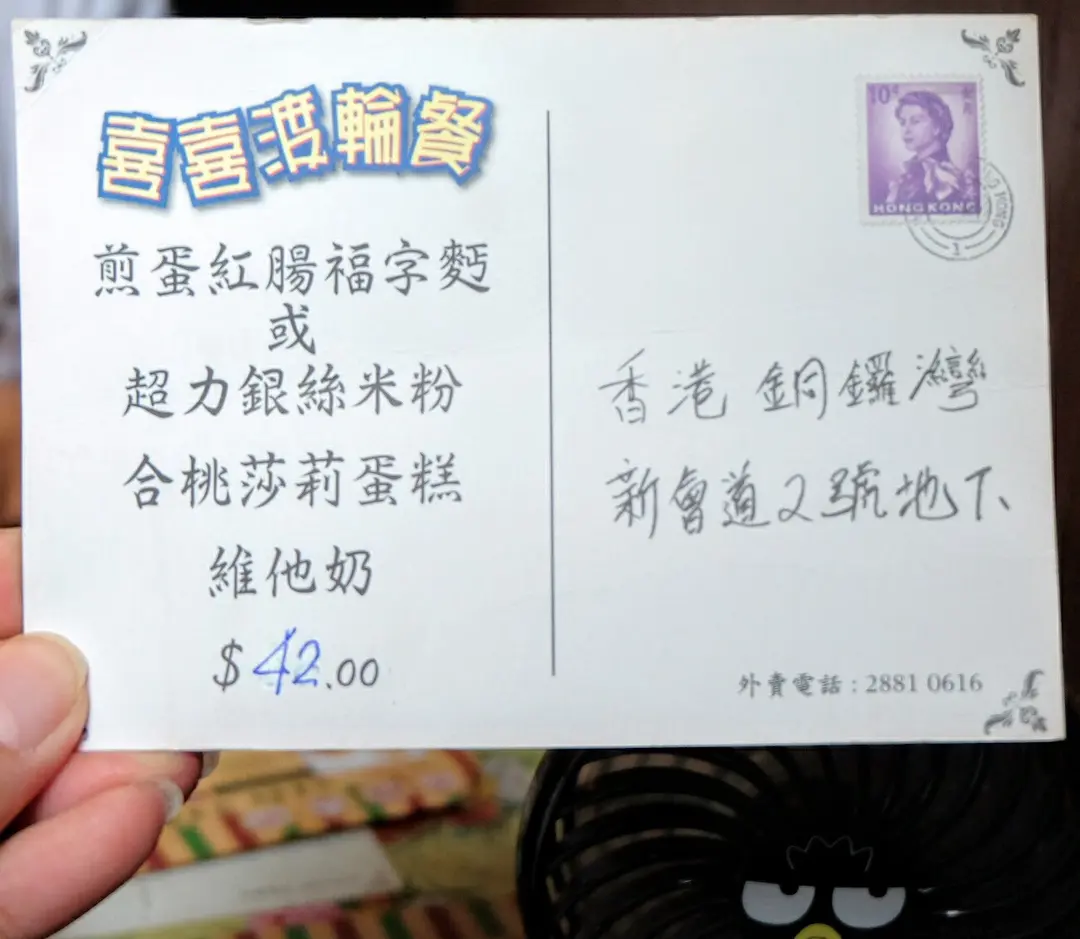 喜喜渡輪餐
煎蛋紅腸福字麪
或
超力銀絲米粉
合桃莎莉蛋糕
維他奶
$42.00
10¢
HONG KONG
1
香港 銅鑼灣
新會道2號地下
外賣電話：2881 0616